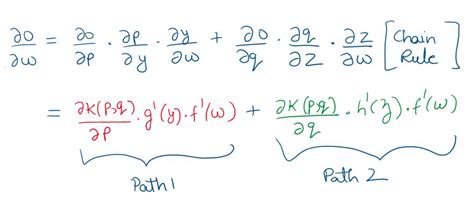 ∂o/∂w = ∂o/∂p · ∂p/∂y · ∂y/∂w + ∂o/∂q · ∂q/∂z · ∂z/∂w [Chain Rule]
= ∂K(p,q)/∂p · g'(y) · f'(w) + ∂K(p,q)/∂q · h'(z) · f'(w)
Path 1 Path 2